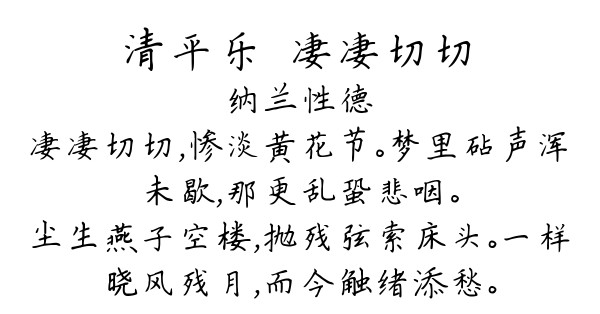 清平乐 凄凄切切
纳兰性德
凄凄切切,惨淡黄花节。梦里砧声浑
未歇,那更乱蛩悲咽。
尘生燕子空楼,抛残弦索床头。一样
晓风残月,而今触绪添愁。